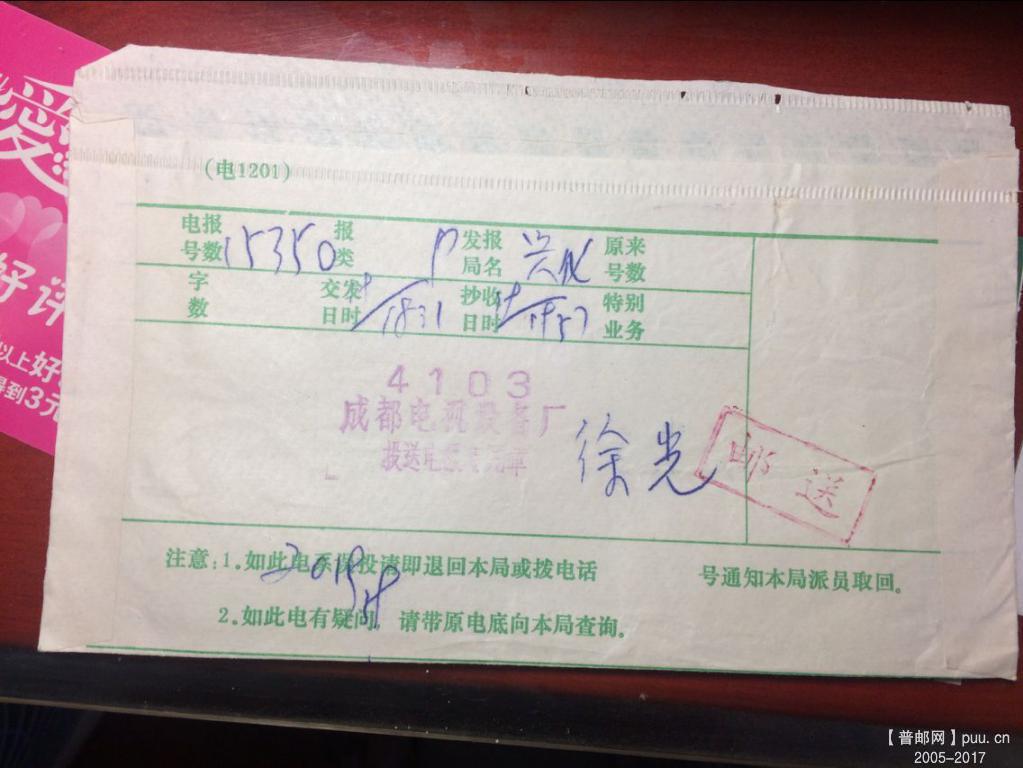 愛
好评
以上好
得到3元
(电1201)
电报号数 15350 报类 发报局名 兴化 原来号数
字数 交发日时 1831 抄收日时 1957 特别业务
4103
成都电视设备厂
投送电报专用章
徐光
邮送
注意:1.如此电系误投请即退回本局或拨电话 号通知本局派员取回。
2.如此电有疑问,请带原电底向本局查询。
【普邮网】puu.cn
2005-2017